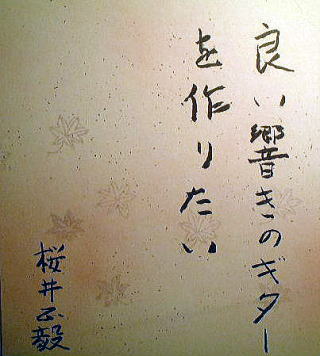 良い響きのギター
を作りたい
桜井正毅